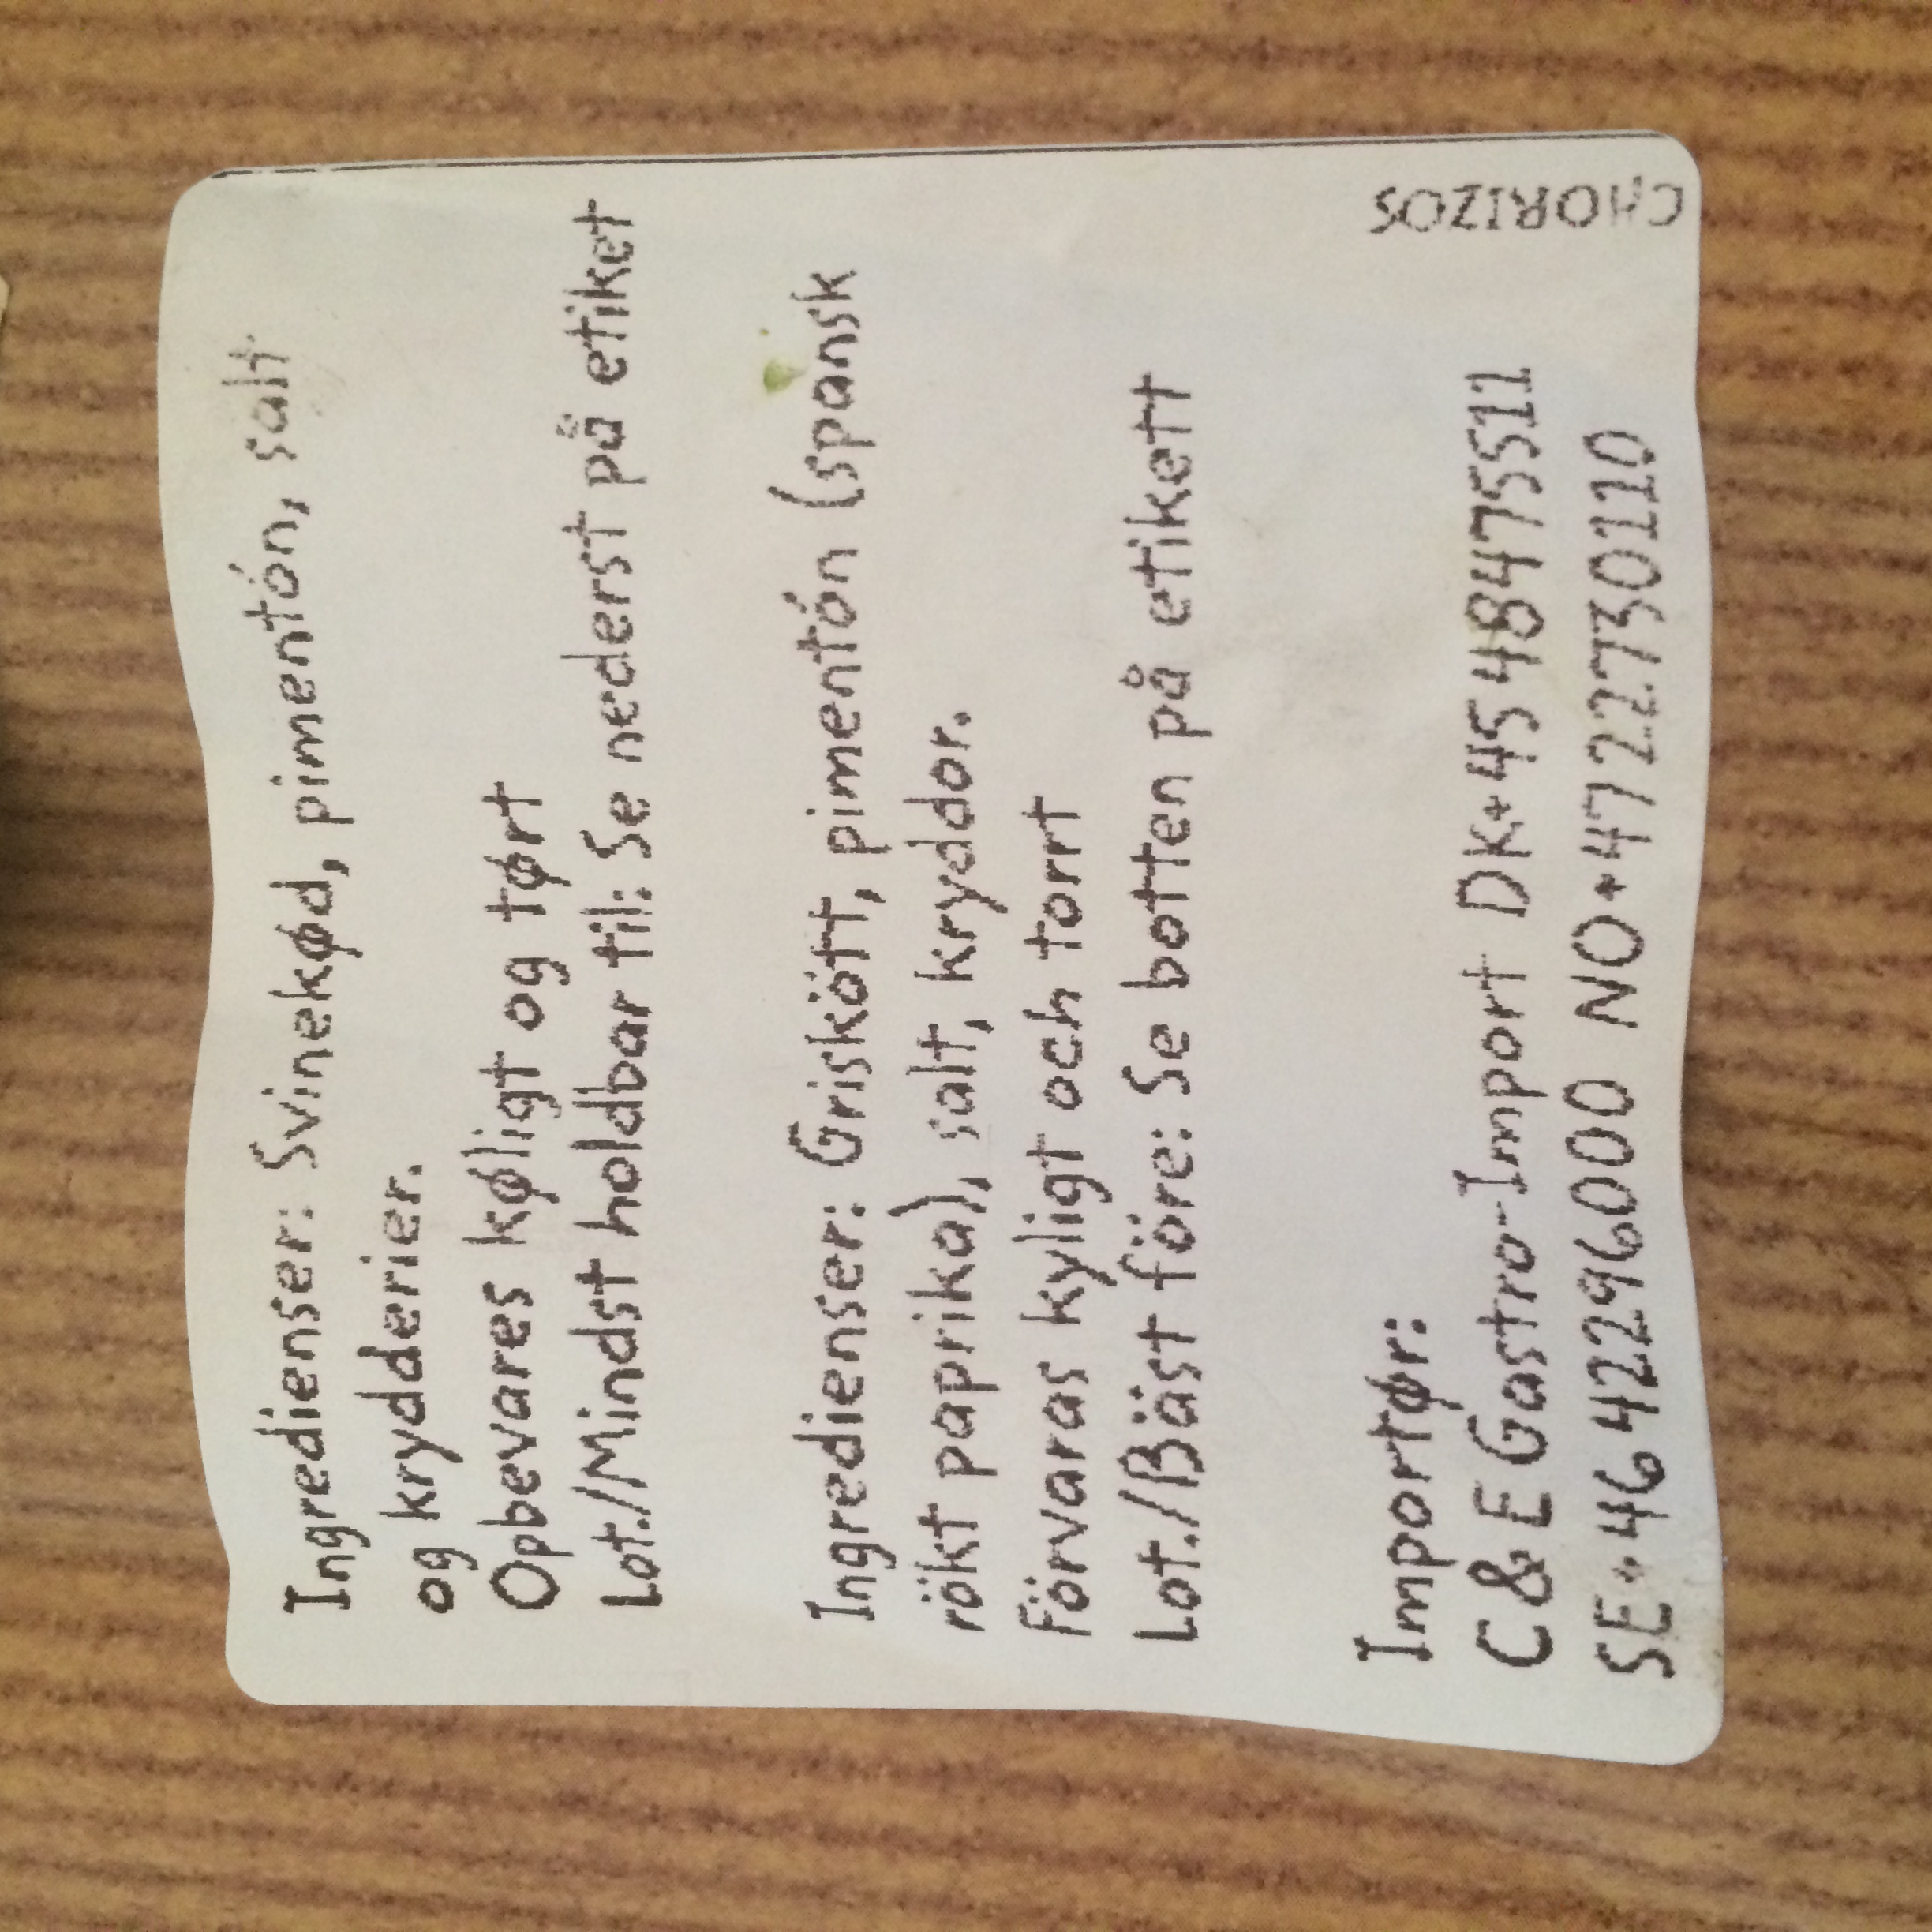 Ingredienser: Svinekød, pimentón, salt
og krydderier.
Opbevares køligt og tørt
Lot./Mindst holdbar til: Se nederst på etiket
Ingredienser: Griskött, pimentón (spansk
rökt paprika), salt, kryddor.
Förvaras kyligt och torrt
Lot./Bäst före: Se botten på etikett
Importør:
C & E Gastro-Import DK+45 48475511
SE+46 42296000 NO+47 22730110
CHORIZOS